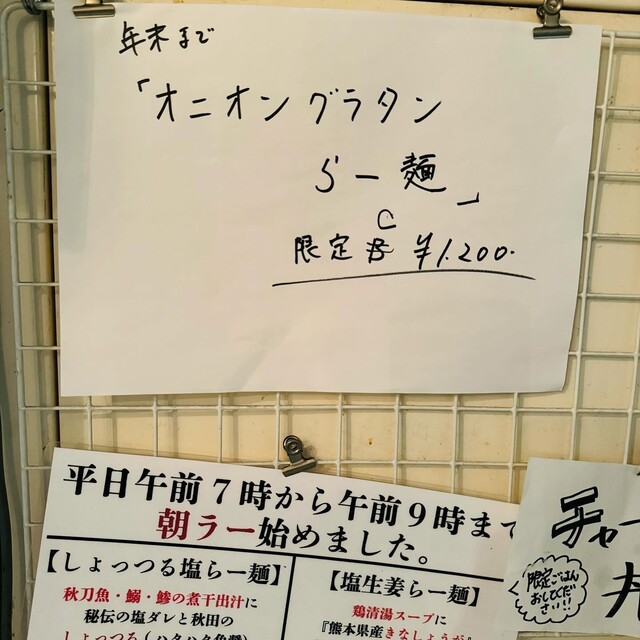 年末まで
「オニオングラタン
らー麺」
C
限定B ¥1.200.
平日午前7時から午前9時まで
朝ラー始めました。
【しょっつる塩らー麺】
秋刀魚・鰯・鯵の煮干出汁に
秘伝の塩ダレと秋田の
しょっつる(ハタハタ魚醤)
【塩生姜らー麺】
鶏清湯スープに
『熊本県産きなしょうが』
チャー
限定ごはん
おしてくだ
さい!!
丼